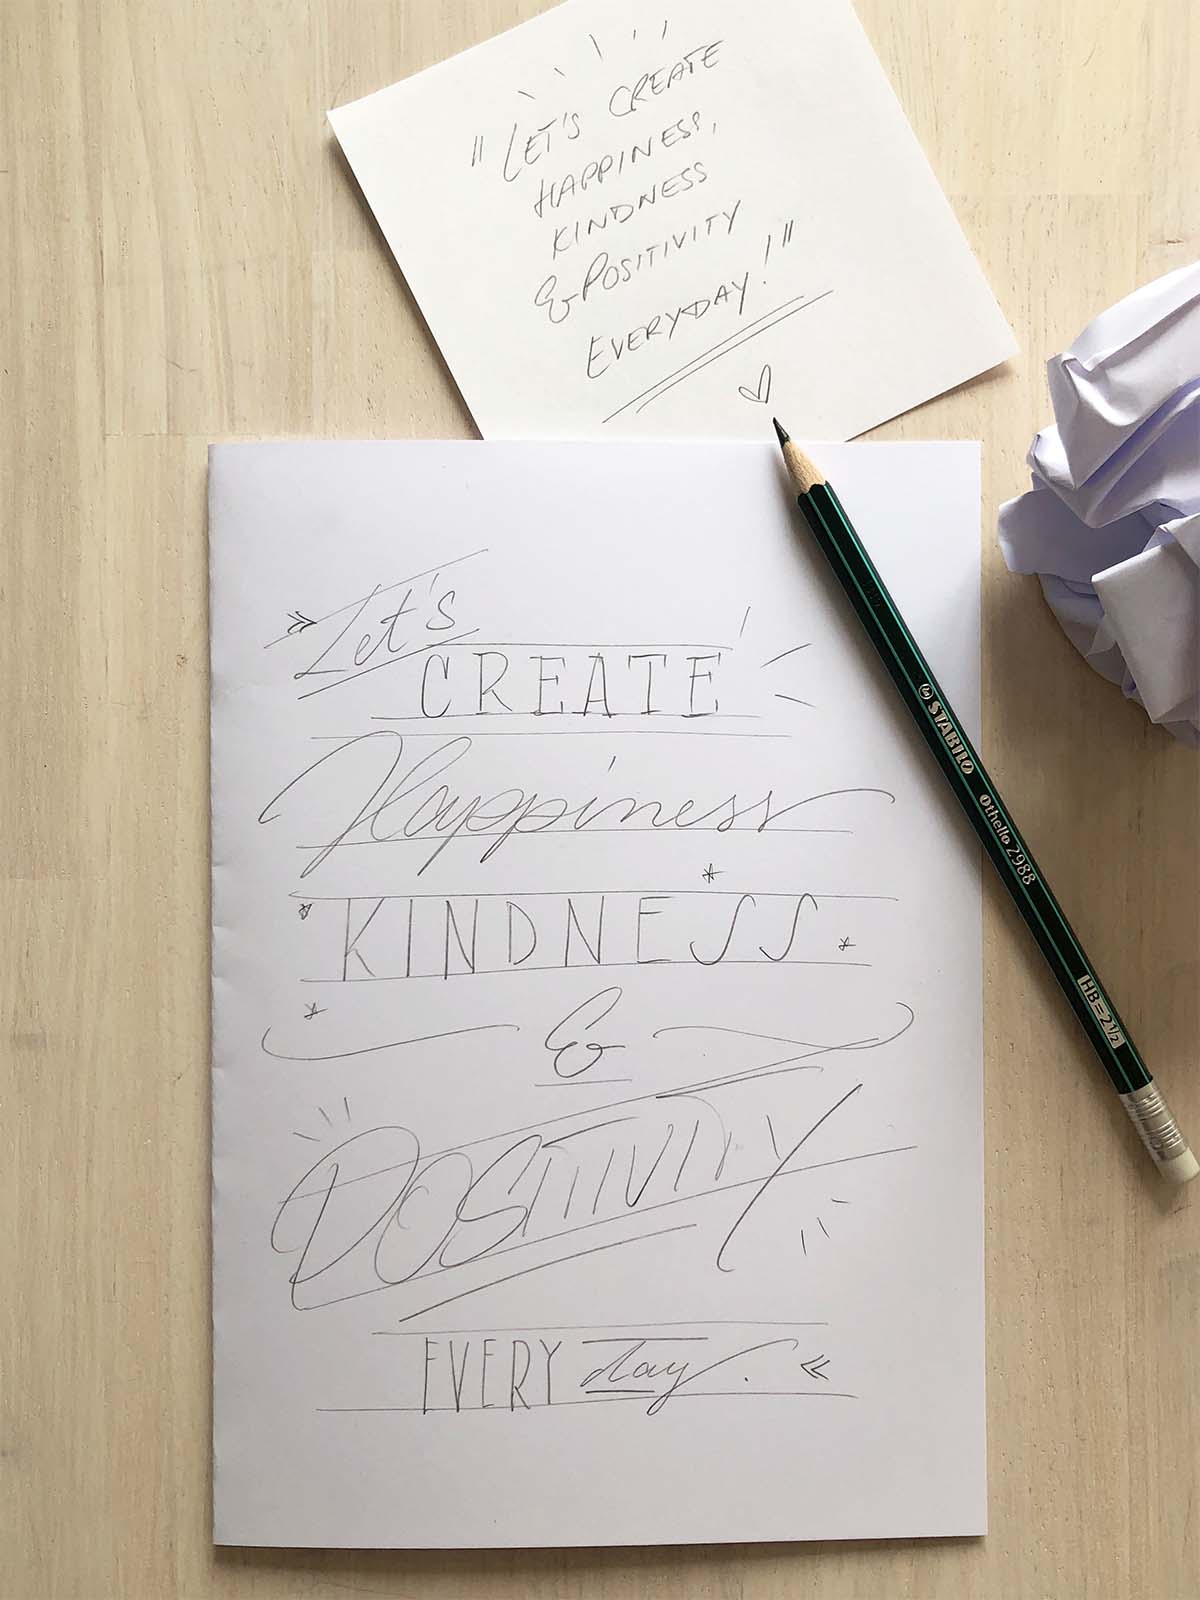 "LET'S CREATE
HAPPINESS,
KINDNESS
& POSITIVITY
EVERYDAY!"
» Let's
CREATE
Happiness
KINDNESS
&
POSITIVITY
EVERY day. «
STABILO Othello 2988 HB = 2 1/2